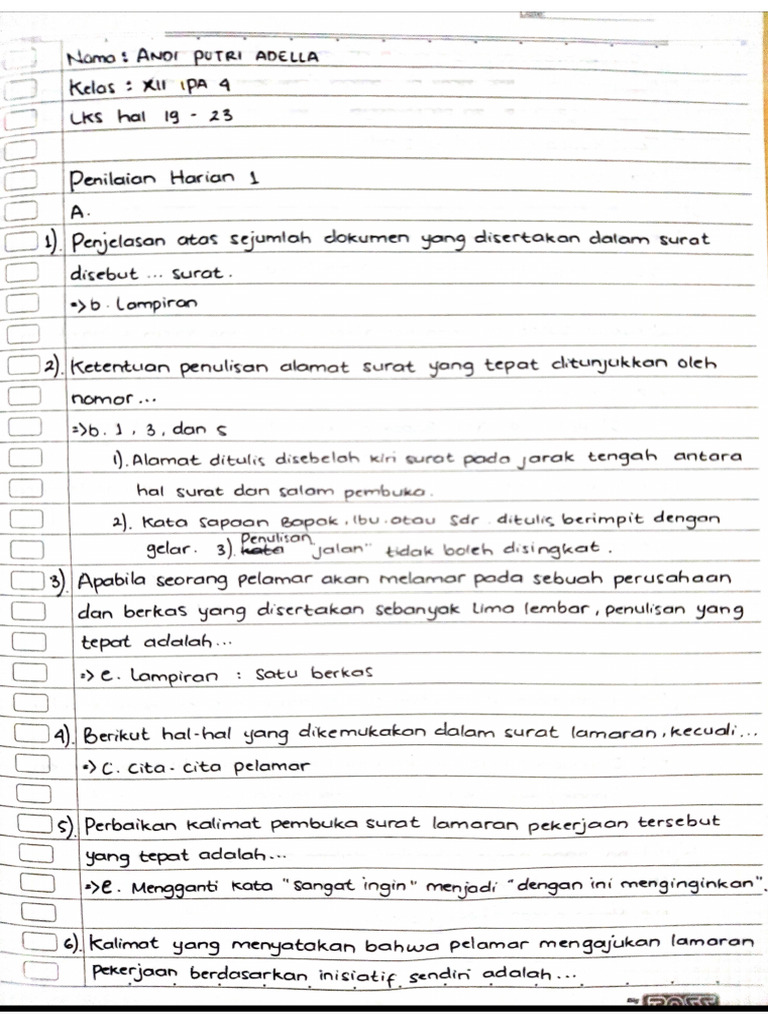 Nama : ANDI PUTRI ADELLA
Kelas : XII IPA 4
LKS hal 19 - 23
Penilaian Harian 1
A.
1). Penjelasan atas sejumlah dokumen yang disertakan dalam surat
disebut ... surat.
=> b. Lampiran
2). Ketentuan penulisan alamat surat yang tepat ditunjukkan oleh
nomor ...
=> b. 1, 3, dan 5
1). Alamat ditulis disebelah kiri surat pada jarak tengah antara
hal surat dan salam pembuka.
2). Kata sapaan Bapak, Ibu, atau Sdr. ditulis berimpit dengan
gelar. 3). Penulisan "jalan" tidak boleh disingkat.
3). Apabila seorang pelamar akan melamar pada sebuah perusahaan
dan berkas yang disertakan sebanyak lima lembar, penulisan yang
tepat adalah...
=> e. Lampiran : Satu berkas
4). Berikut hal-hal yang dikemukakan dalam surat lamaran, kecuali...
=> C. Cita-cita pelamar
5). Perbaikan kalimat pembuka surat lamaran pekerjaan tersebut
yang tepat adalah...
=> e. Mengganti kata "sangat ingin" menjadi "dengan ini menginginkan".
6). Kalimat yang menyatakan bahwa pelamar mengajukan lamaran
Pekerjaan berdasarkan inisiatif sendiri adalah...
Big BOSS